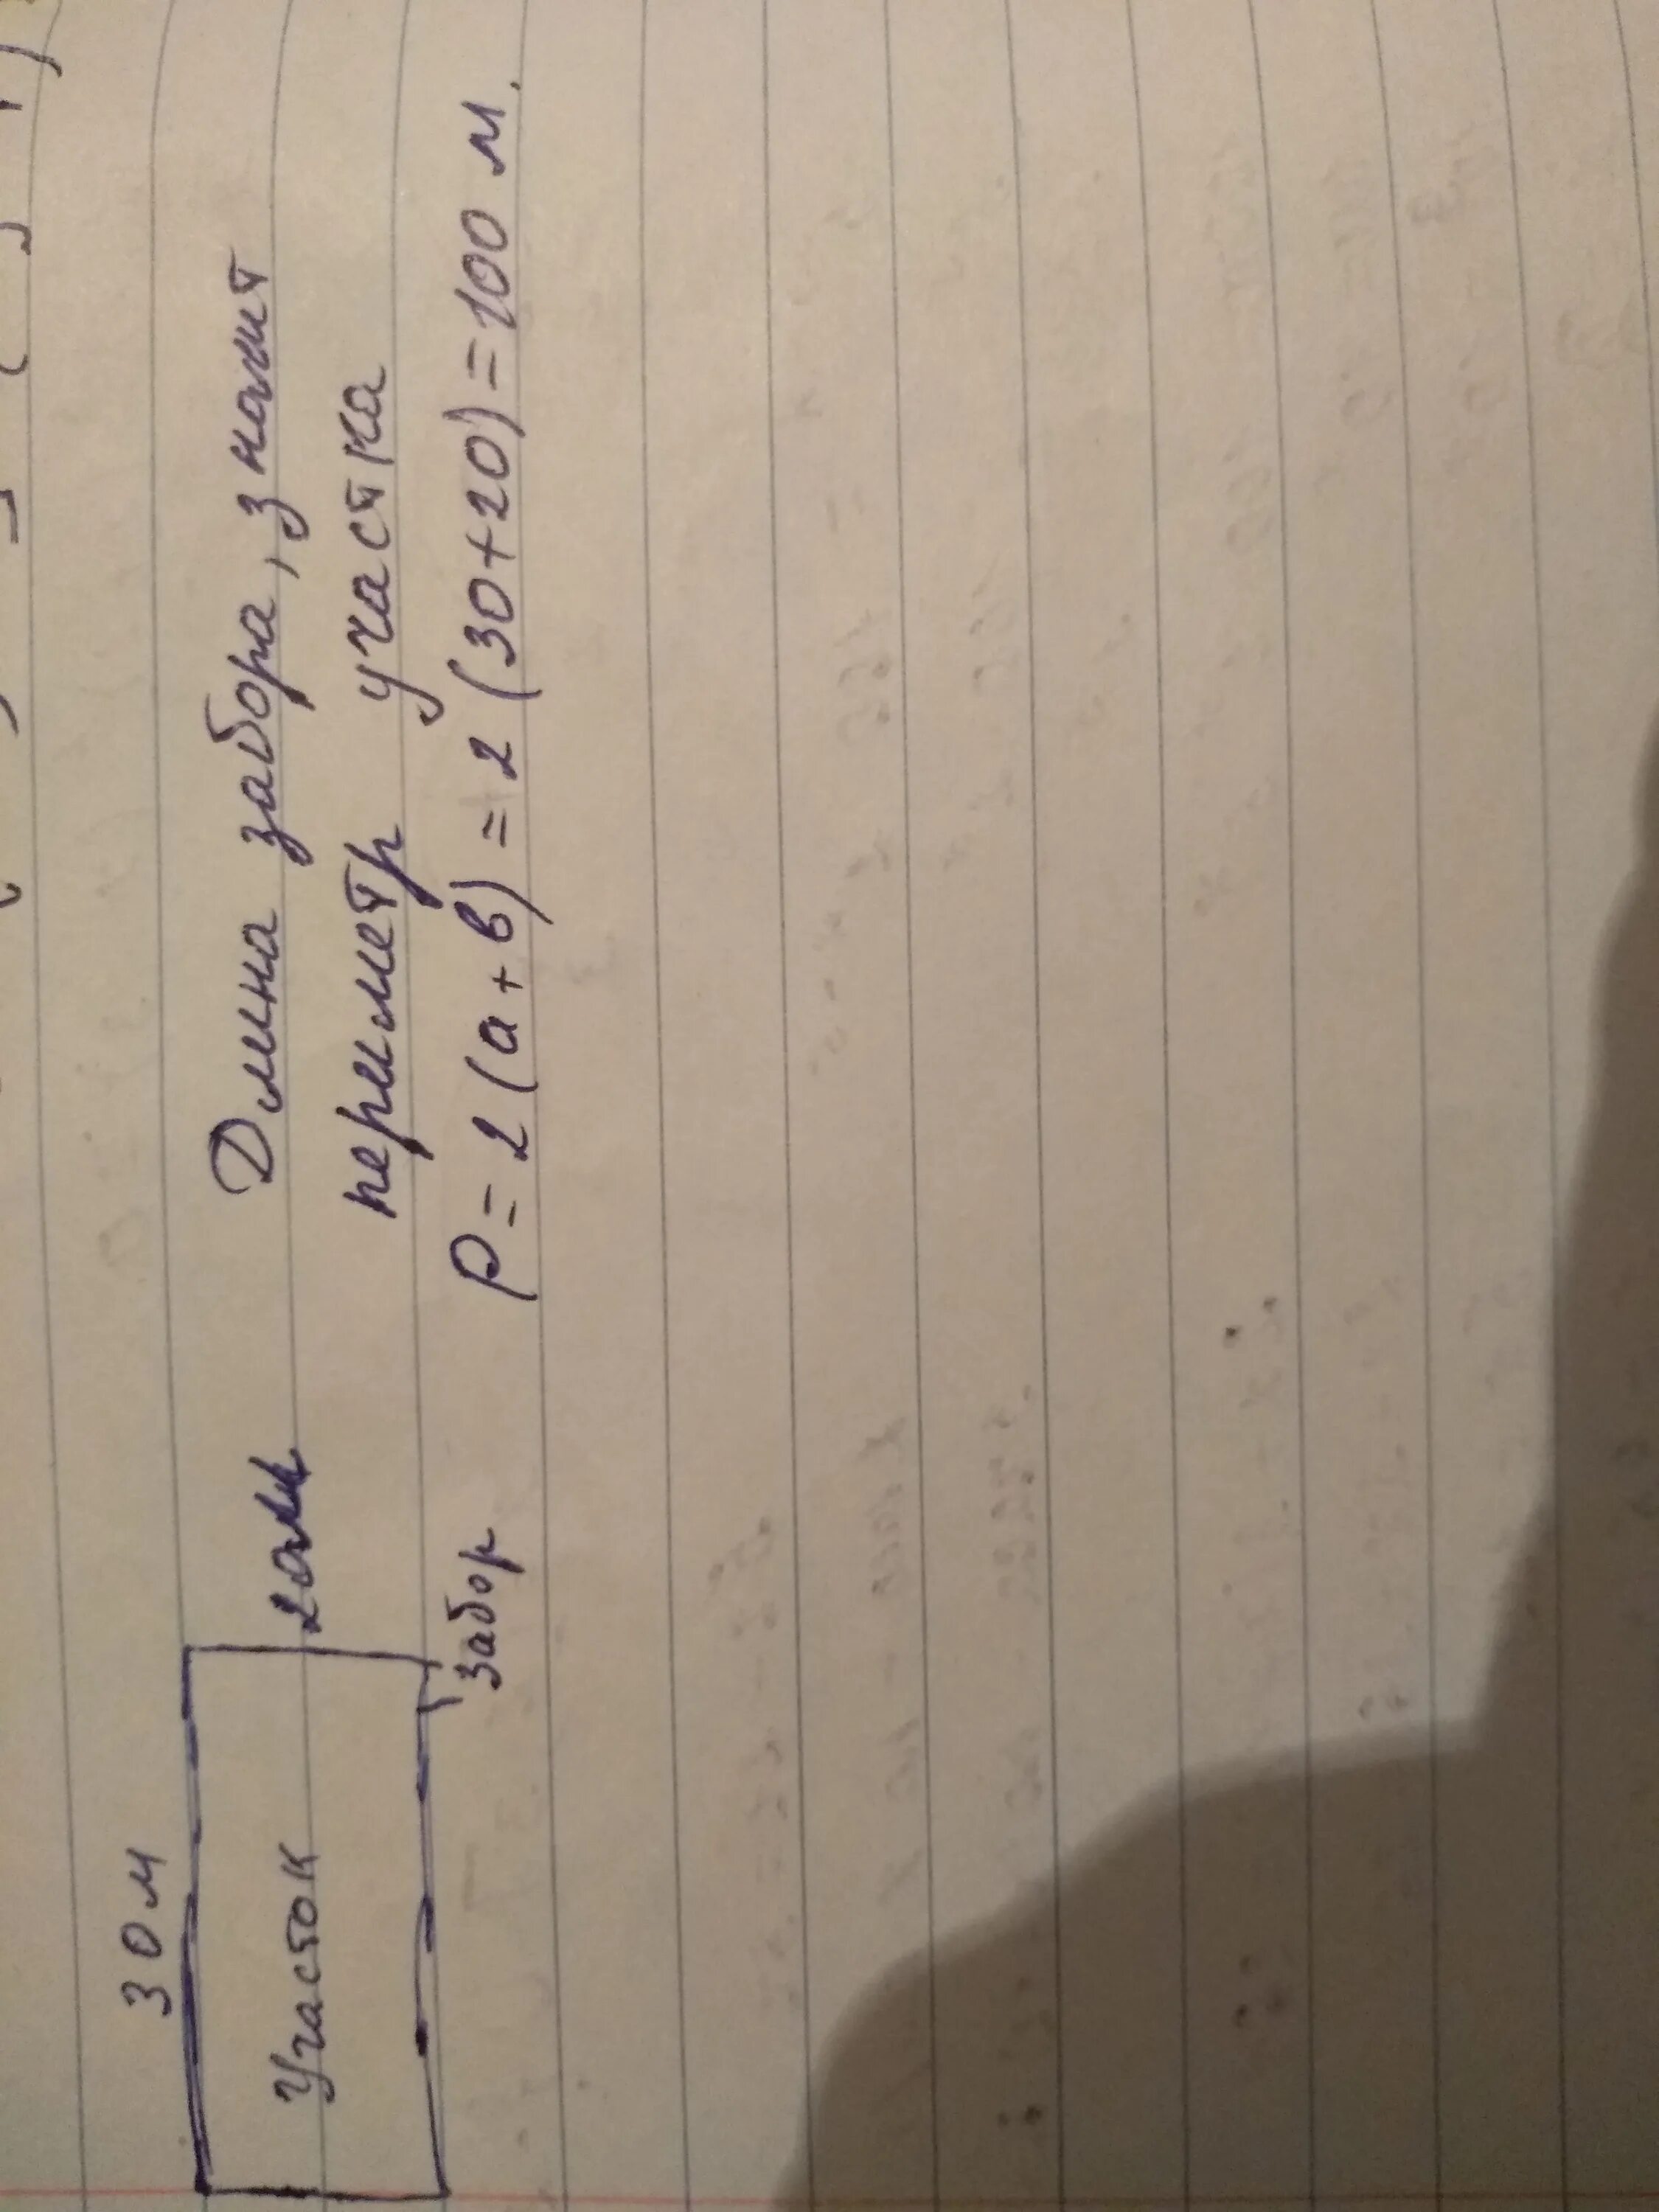 30 м
Участок
20м
забор
Длина забора, значит
периметр участка
P = 2 (а + в) = 2 (30+20) = 100 м.